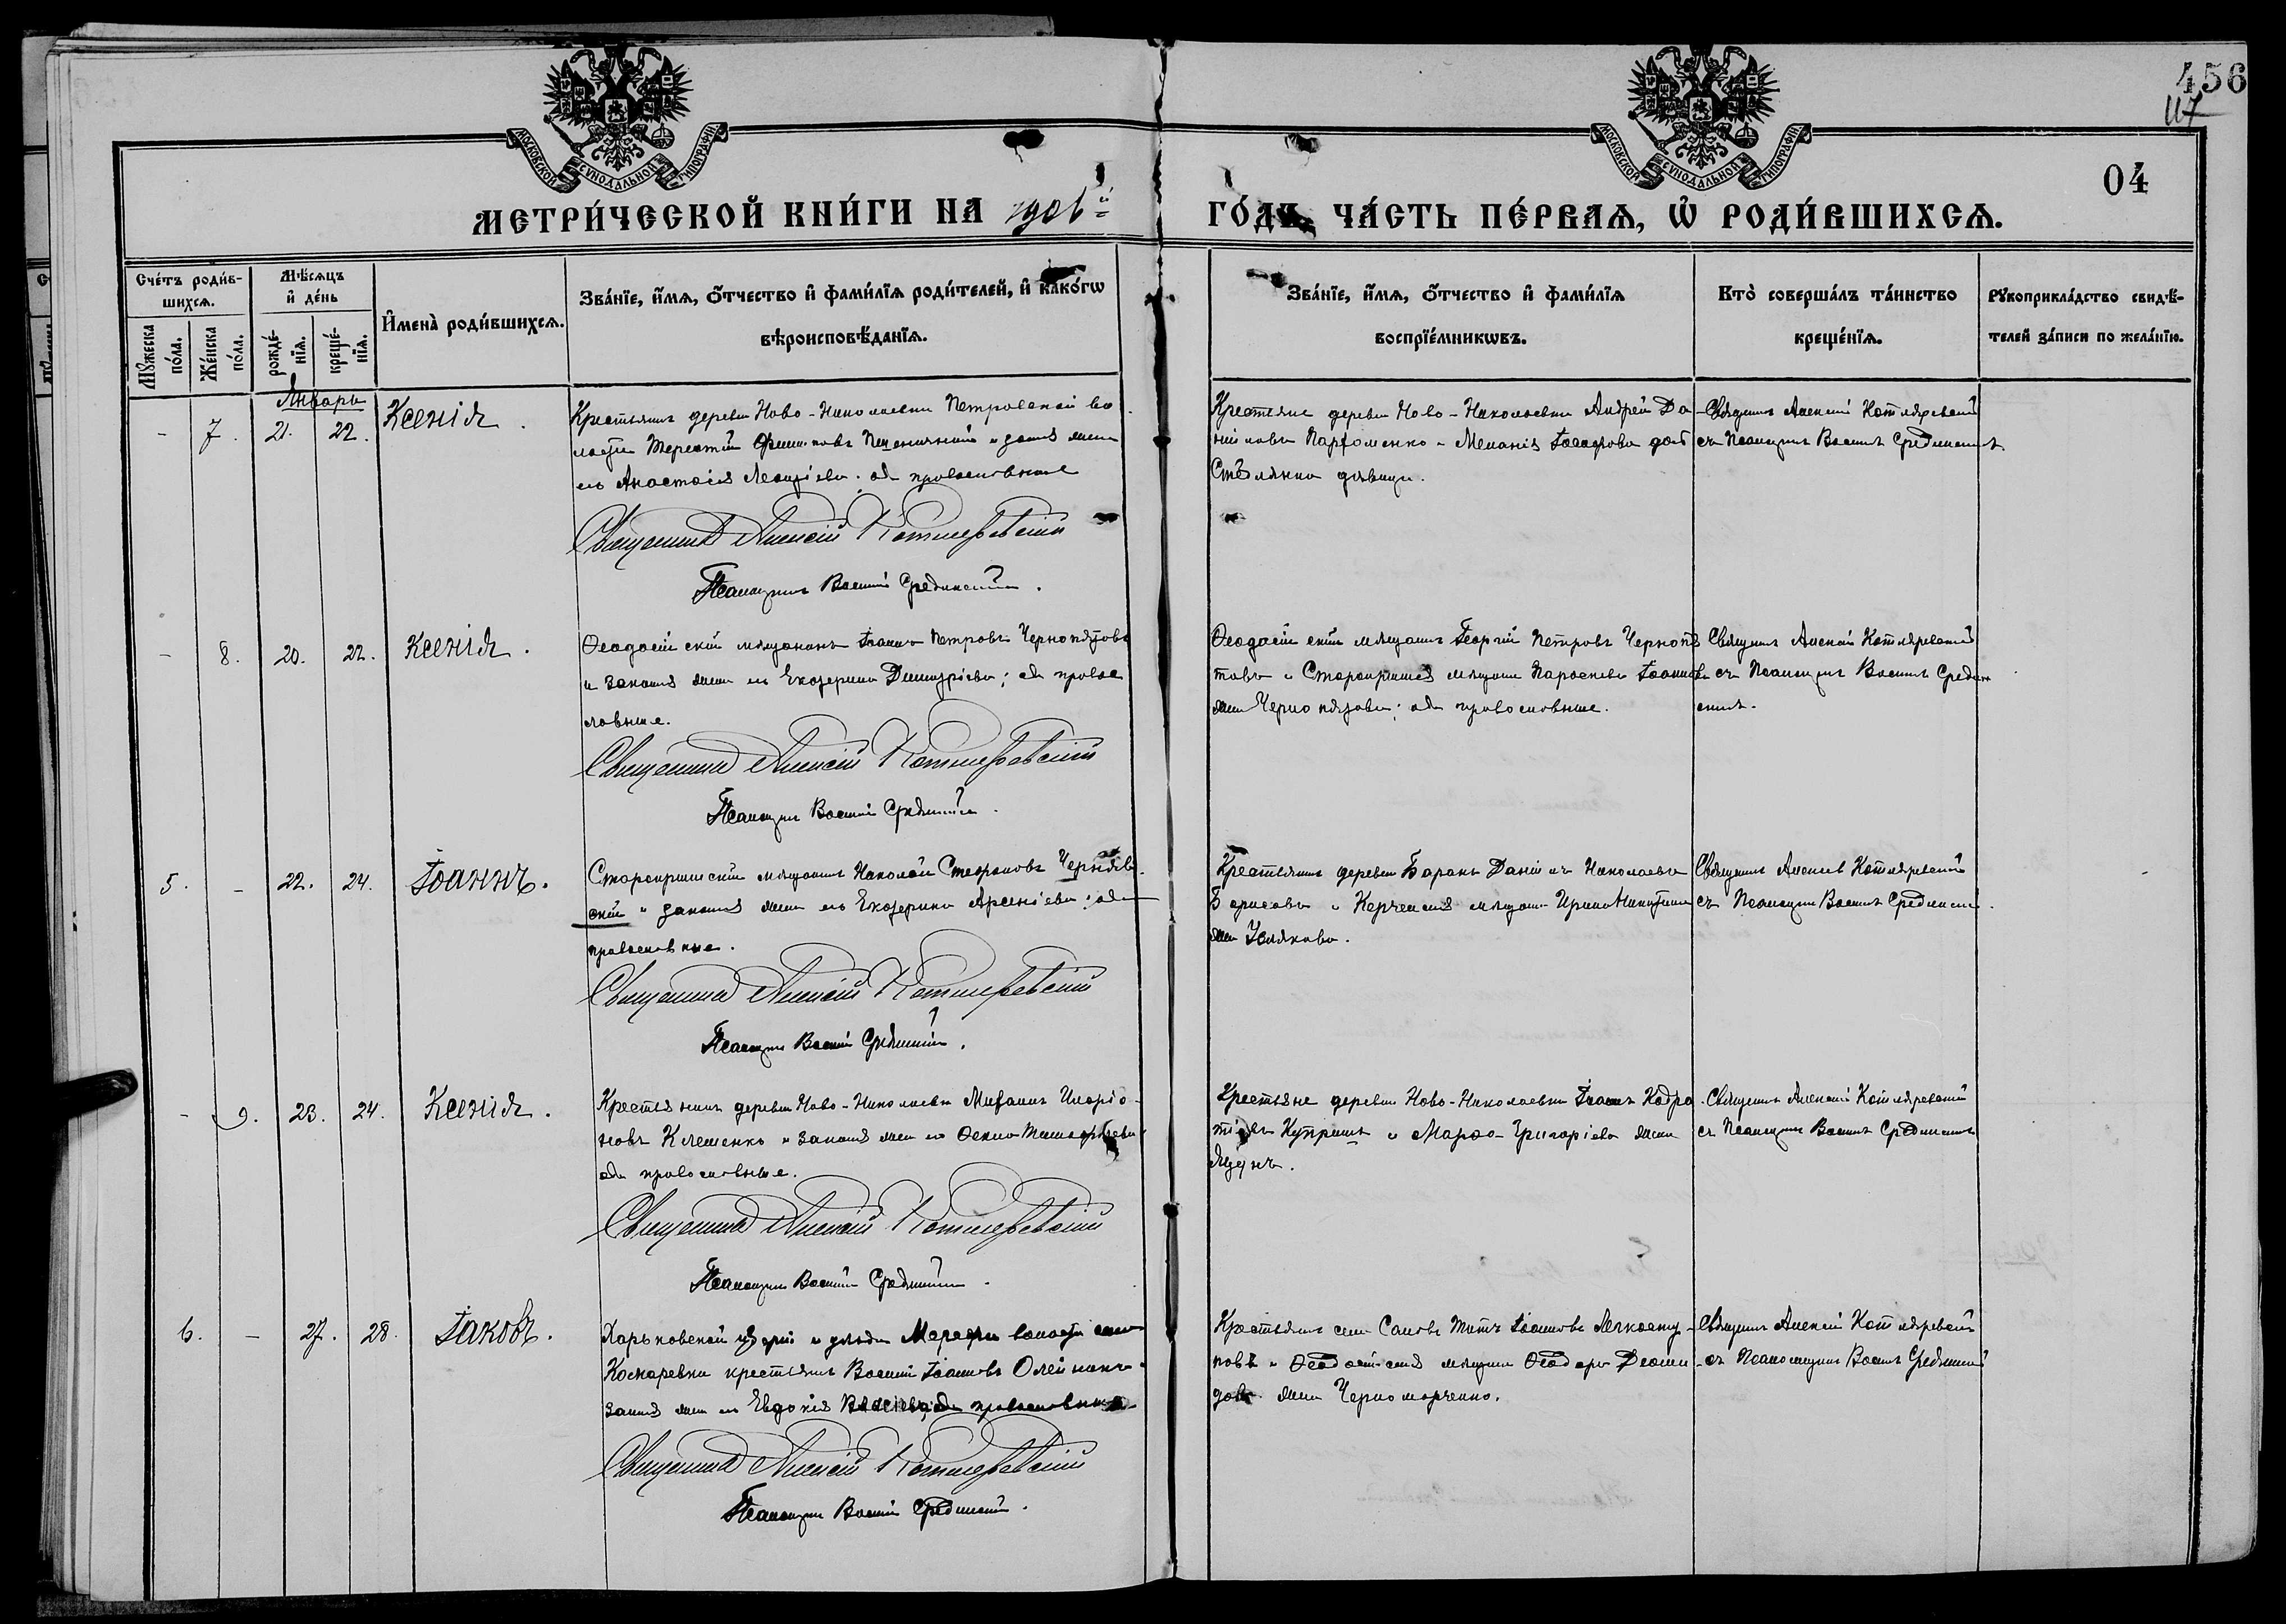 456
117
04
МОСКОВСКОЙ СѴНОДАЛЬНОЙ ТИПОГРАФІИ.
МОСКОВСКОЙ СѴНОДАЛЬНОЙ ТИПОГРАФІИ.
МЕТРИ́ЧЕСКОЙ КНИ́ГИ НА 1906й ГО́ДЪ, ЧА́СТЬ ПЕ́РВАѦ, Ѡ҆ РОДИ́ВШИХСѦ.
Сче́тъ роди́в-
шихсѧ.
Мꙋ́жеска по́ла.
Же́нска по́ла.
Мѣ́сѧцъ
и҆ де́нь
рожде́-
нїѧ.
креще́-
нїѧ.
И҆мена̀ роди́вшихсѧ.
Зва́нїе, и҆́мѧ, ѻ҆́тчество и҆ фами́лїѧ роди́телей, и҆ како́гѡ
вѣроисповѣ́данїѧ.
Зва́нїе, и҆́мѧ, ѻ҆́тчество и҆ фами́лїѧ
воспрїе́мникѡвъ.
Кто̀ соверша́лъ та́инство
креще́нїѧ.
Рꙋкоприкла́дство свидѣ́-
телей за́писи по жела́нїю.
Январь
- 7. 21. 22. Ксенія.
Крестьянинъ деревни Ново-Николаевки Петровской во
лости Терентій Пшеничный и законная жена
его Анастасія ; оба православные
Священникъ Алексій Котляревскій
Псаломщикъ Василій Срединскій.
Крестьяне деревни Ново-Николаевки Андрей Да
ніиловъ Парфоменко и Меланія Іосифова доч
дѣвица.
Священникъ Алексій Котляревскій
съ Псаломщикомъ Василіемъ Срединскимъ
- 8. 20. 22. Ксенія.
Ѳеодосійскій мѣщанинъ Іоаннъ Петровъ Чернопятовъ
и законная жена его Екатерина Димитріева; оба право
славные.
Священникъ Алексій Котляревскій
Псаломщикъ Василій Срединскій.
Ѳеодосійскій мѣщанинъ Георгій Петровъ Чернопя
товъ и Старокрымская мѣщанка Параскева Іоаннова
жена Чернопятова; оба православные.
Священникъ Алексій Котляревскій
съ Псаломщикомъ Василіемъ Средин
скимъ.
5. - 22. 24. Іоаннъ.
Старокрымскій мѣщанинъ Николай Стефановъ Черняв
скій и законная жена его Екатерина Арсеніева; оба
православные.
Священникъ Алексій Котляревскій
Псаломщикъ Василій Срединскій.
Крестьянинъ деревни Баранъ Даніилъ Николаевъ
Борисовъ и Керченская мѣщанка Ирина Никитина
жена
Священникъ Алексій Котляревскій
съ Псаломщикомъ Василіемъ Срединскимъ.
- 9. 23. 24. Ксенія.
Крестьянинъ деревни Ново-Николаевки Митфанъ Иларіо-
новъ Клешенко и законная жена его Ѳекла Тимофеева
оба православные.
Священникъ Алексій Котляревскій
Псаломщикъ Василій Срединскій.
Крестьяне деревни Ново-Николаевки Іоаннъ Кодра
товъ Купринъ и Марѳа Григорієва жена
Священникъ Алексій Котляревскій
съ Псаломщикомъ Василіемъ Срединскимъ
6. - 27. 28. Іаковъ.
Харьковской губерніи и уѣзда Мерефянской волости села
Кокаревки крестьянинъ Василій Іоанновъ Олейникъ и
законная жена его Евдокія Власіева, оба православные
Священникъ Алексій Котляревскій
Псаломщикъ Василій Срединскій.
Крестьянинъ села Титъ Іоанновъ
повъ и Ѳеодосійская мѣщанка Ѳеодора Деоми
дова жена Черноморченко.
Священникъ Алексій Котляревскій
съ Псаломщикомъ Василіемъ Срединскимъ